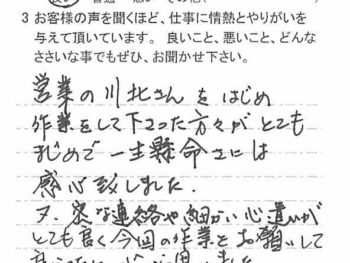 3 お客様の声を聞くほど、仕事に情熱とやりがいを
与えて頂いています。良いこと、悪いこと、どんな
ささいな事でもぜひ、お聞かせ下さい。
営業の川北さんをはじめ
作業をして下さった方々がとても
まじめで一生懸命さには
感心致しました.
又、密な連絡や細かい心遣いが
とても良く今回の作業をお願いして